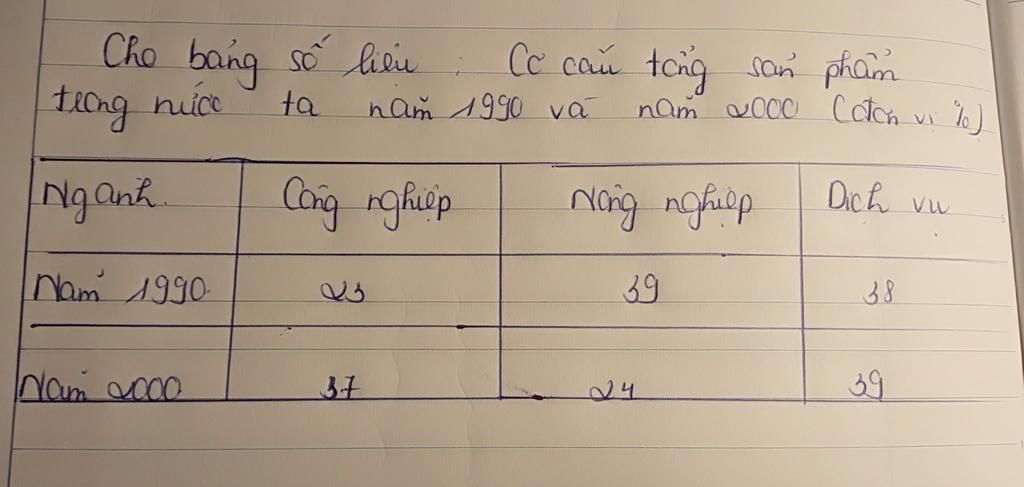 Cho bảng số liệu : Cơ cấu tổng sản phẩm
trong nước ta năm 1990 và năm 2000 (đơn vị %)
Ngành Công nghiệp Nông nghiệp Dịch vụ
Năm 1990 23 39 38
Năm 2000 37 24 39